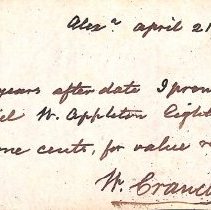 Alex.ª April 21
years after date I prom
el W. Appleton Eight
one cents, for value r
W. Cranc